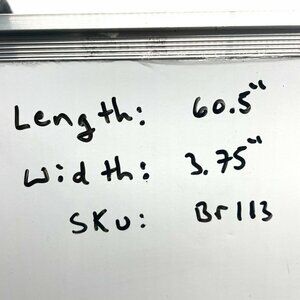 Length: 60.5"
Width: 3.75"
SKU: Br113